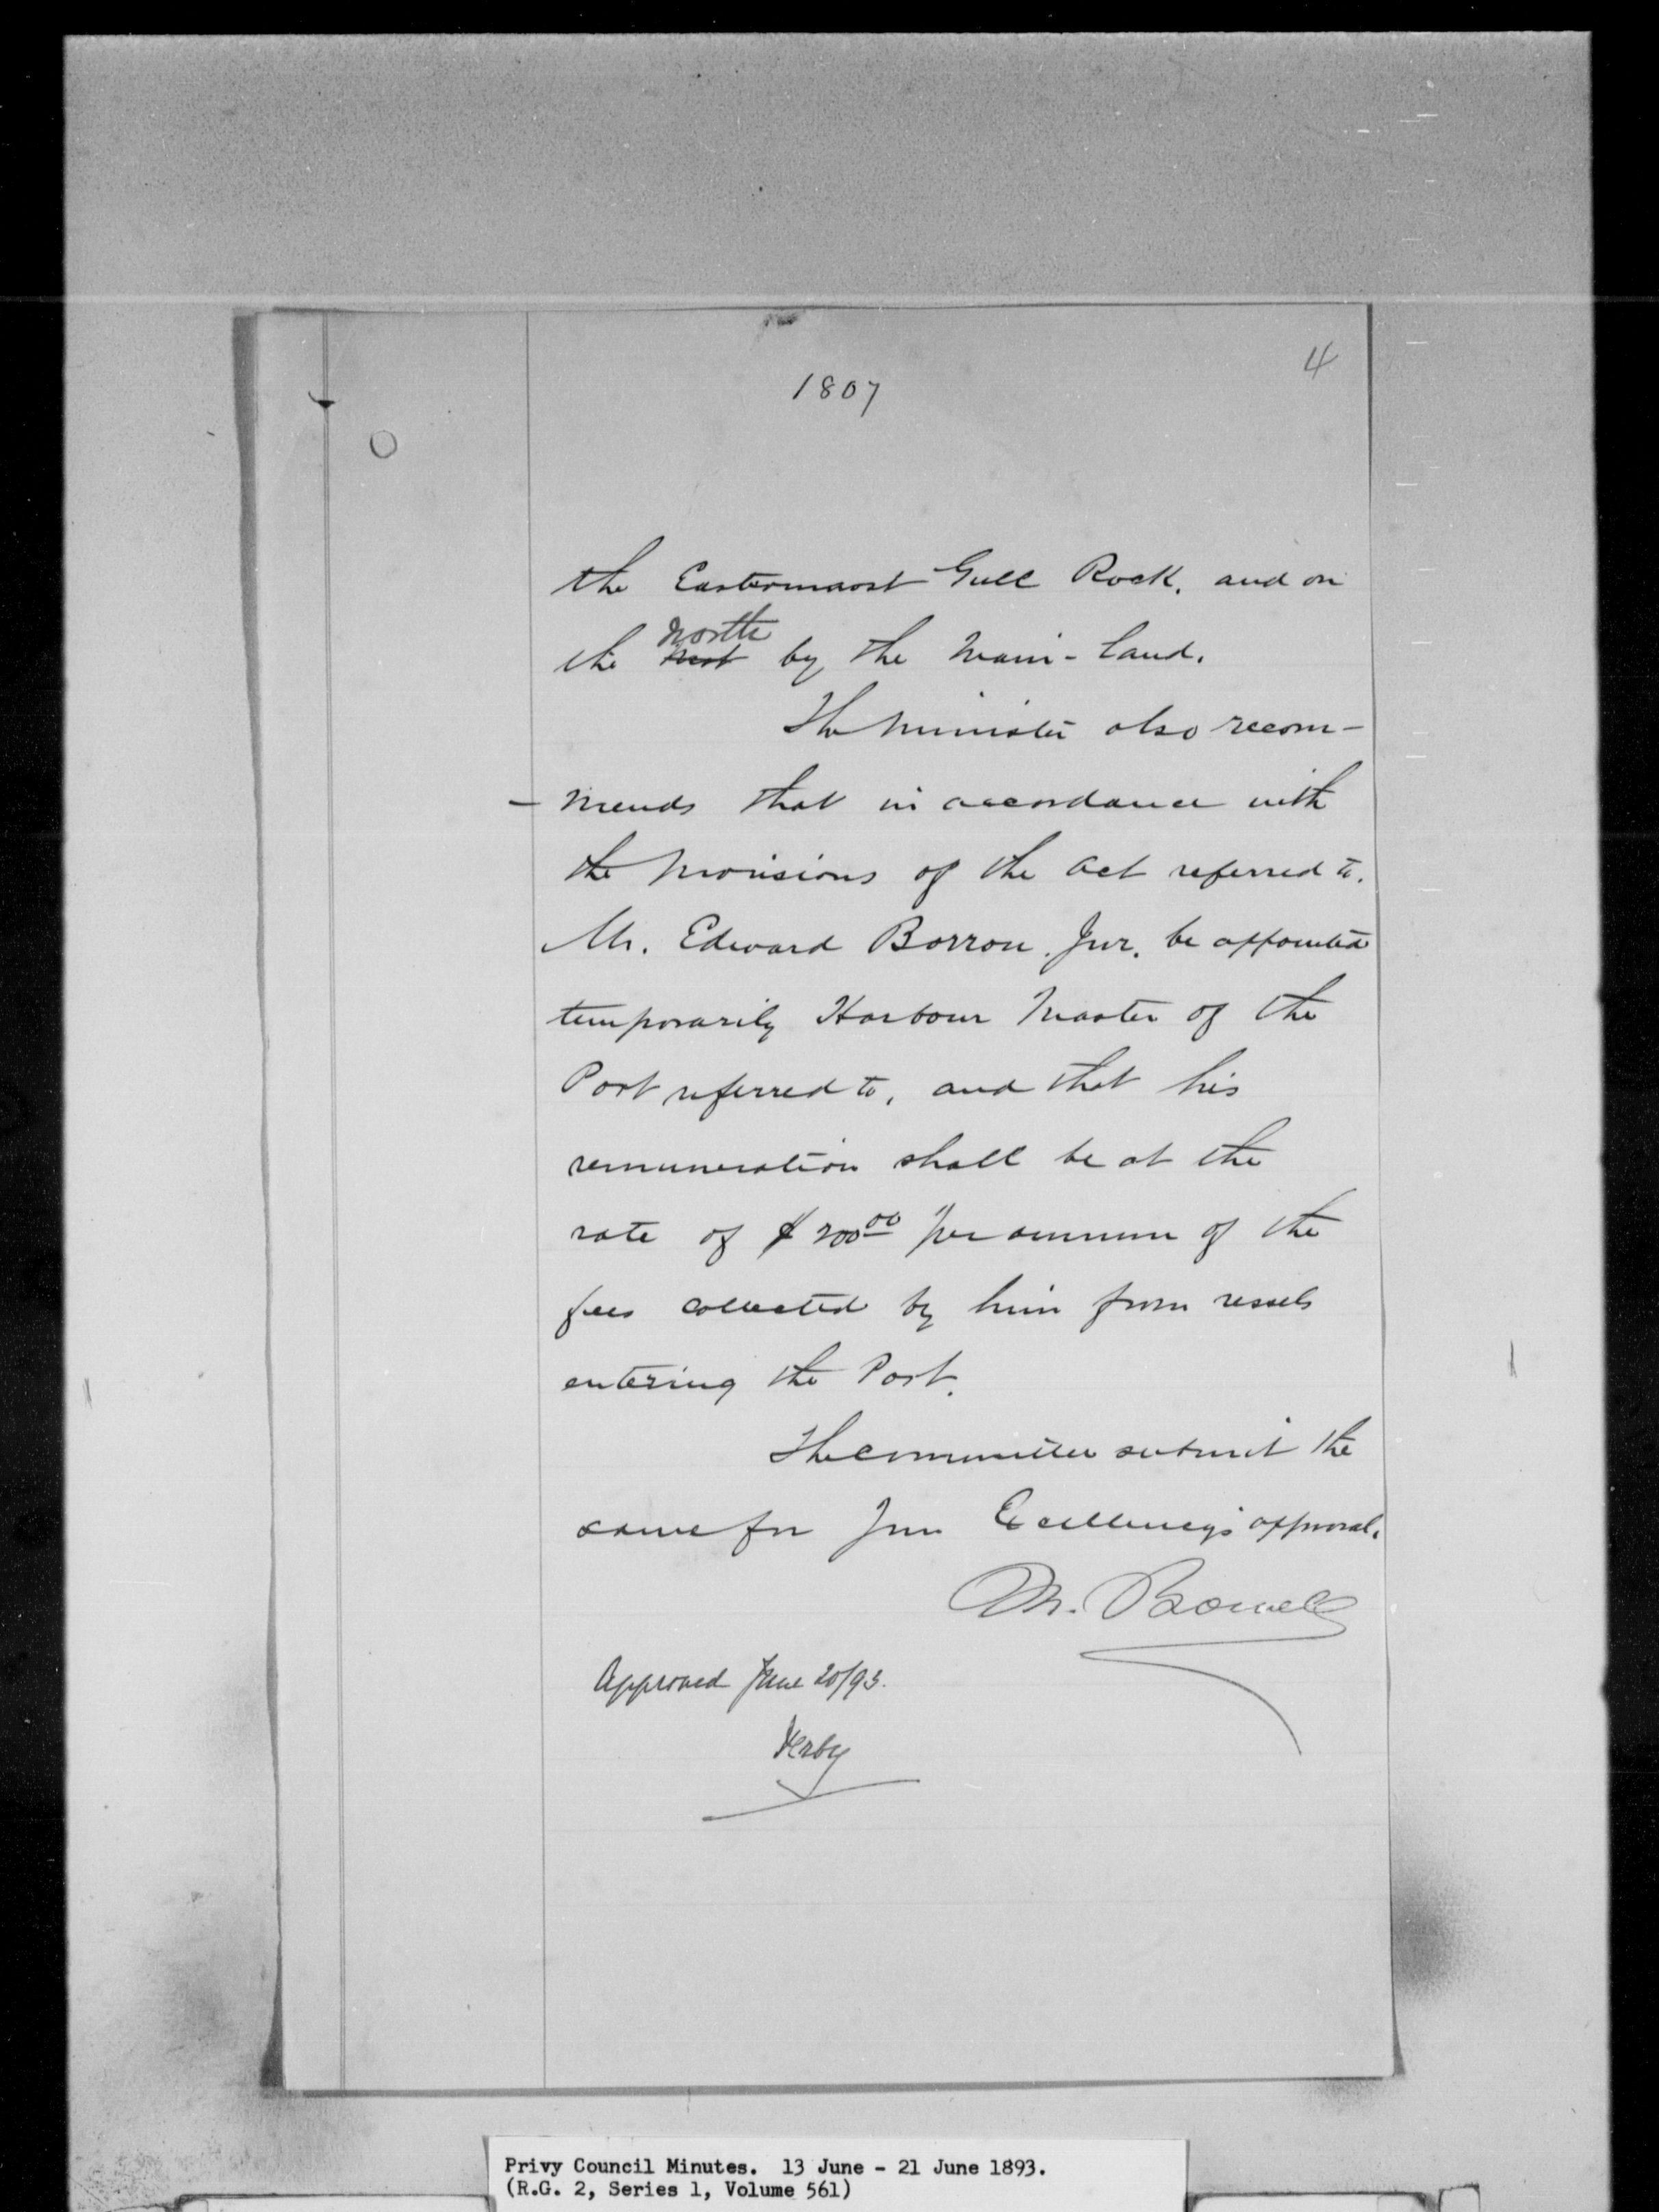 4
1807
the Eastermost Gull Rock, and on
north
the west by the Main-land.
The Minister also recom-
-mends that in accordance with
the provisions of the Act referred to.
Mr. Edward Borron, Jnr. be appointed
temporarily Harbour Master of the
Port referred to, and that his
remuneration shall be at the
rate of $200.00 per annum of the
fees collected by him from vessels
entering the Port.
The Committee submit the
same for Your Excellency's approval.
M. Bowell
Approved June 20/93.
Derby
Privy Council Minutes. 13 June - 21 June 1893.
(R.G. 2, Series 1, Volume 561)